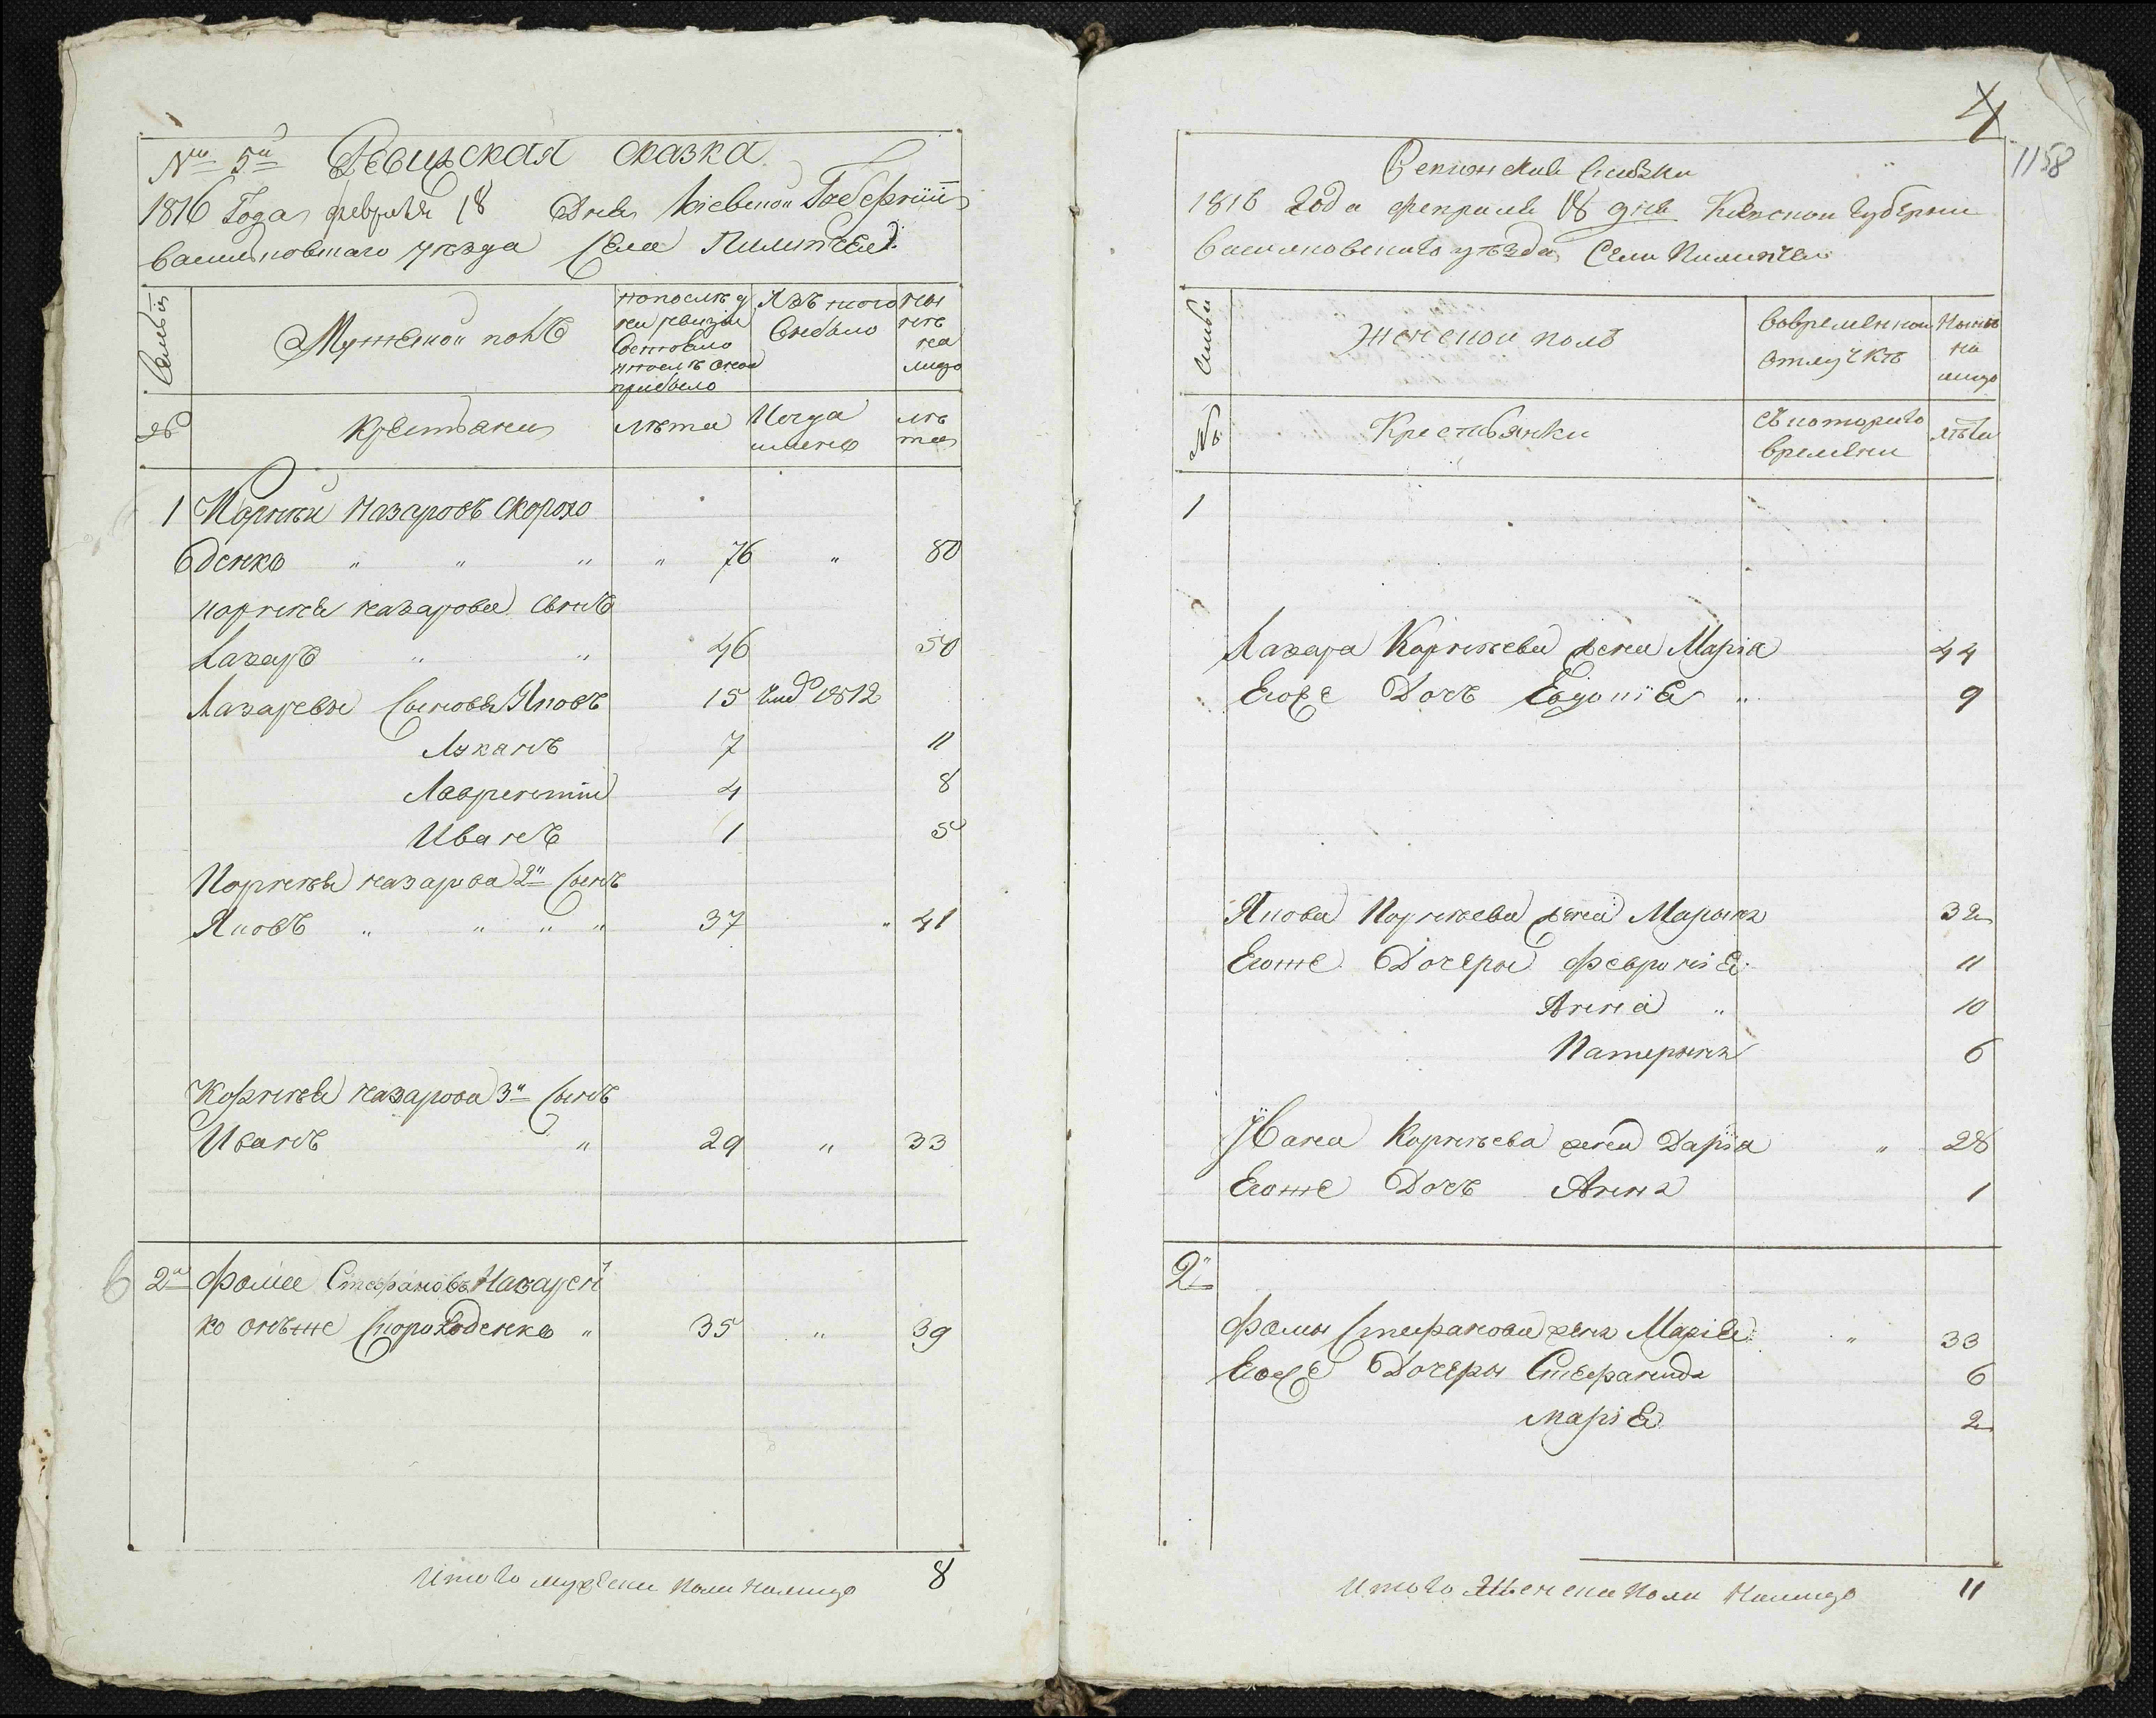 № 5й Ревизская сказка
1816 Года февраля 18 Дня Кіевской Губерніи
Васильковскаго уезда Села Пилипчей
Семьи
Мужеской полъ
По послѣд
ней ревизіи
Состояло
и после оной
прибыло
Изъ того
Выбыло
Ны
не
на
лицо
№
Крестьяне
лѣта
Когда
именно
лѣ
та
1 Корнѣй Назаровъ Скорохо
денко " " " " 76 " 80
Корнѣя Назарова Сынъ
Лазаръ " " 46 50
Лазаревы Сыновья Яковъ 15 1812
Лукянъ 7 11
Лаврентий 4 8
Иванъ 1 5
Корнѣя Назарова 2й Сынъ
Яковъ " " " " 37 " 41
Корнѣя Назарова 3й Сынъ
Иванъ " 29 " 33
6 2й Фома Стефановъ Назарен
ко онъже Скороходенко " 35 " 39
Итого мужеска пола налицо 8
4
1158
Ревизская Сказка
1816 года февраля 18 дня Киевской губернии
Васильковского уѣзда Села Пилипчей
Семьи
Женской полъ
Вовременной
отлучкѣ
Нынѣ
на
лицо
№
Крестьянки
Съ которого
времени
лѣта
1
Лазара Корнѣева жена Марія 44
Егоже Дочь Евдокія " 9
Якова Корнѣева жена Марына 32
Егоже Дочеры Февронія 11
Анна " 10
Катерына 6
Ивана Корнѣева жена Дарія " 28
Егоже Дочь Анна 1
2й
Фомы Стефанова жена Марія " 33
Егоже Дочеры Стефанида 6
Марія 2
Итого Женска пола Налицо 11